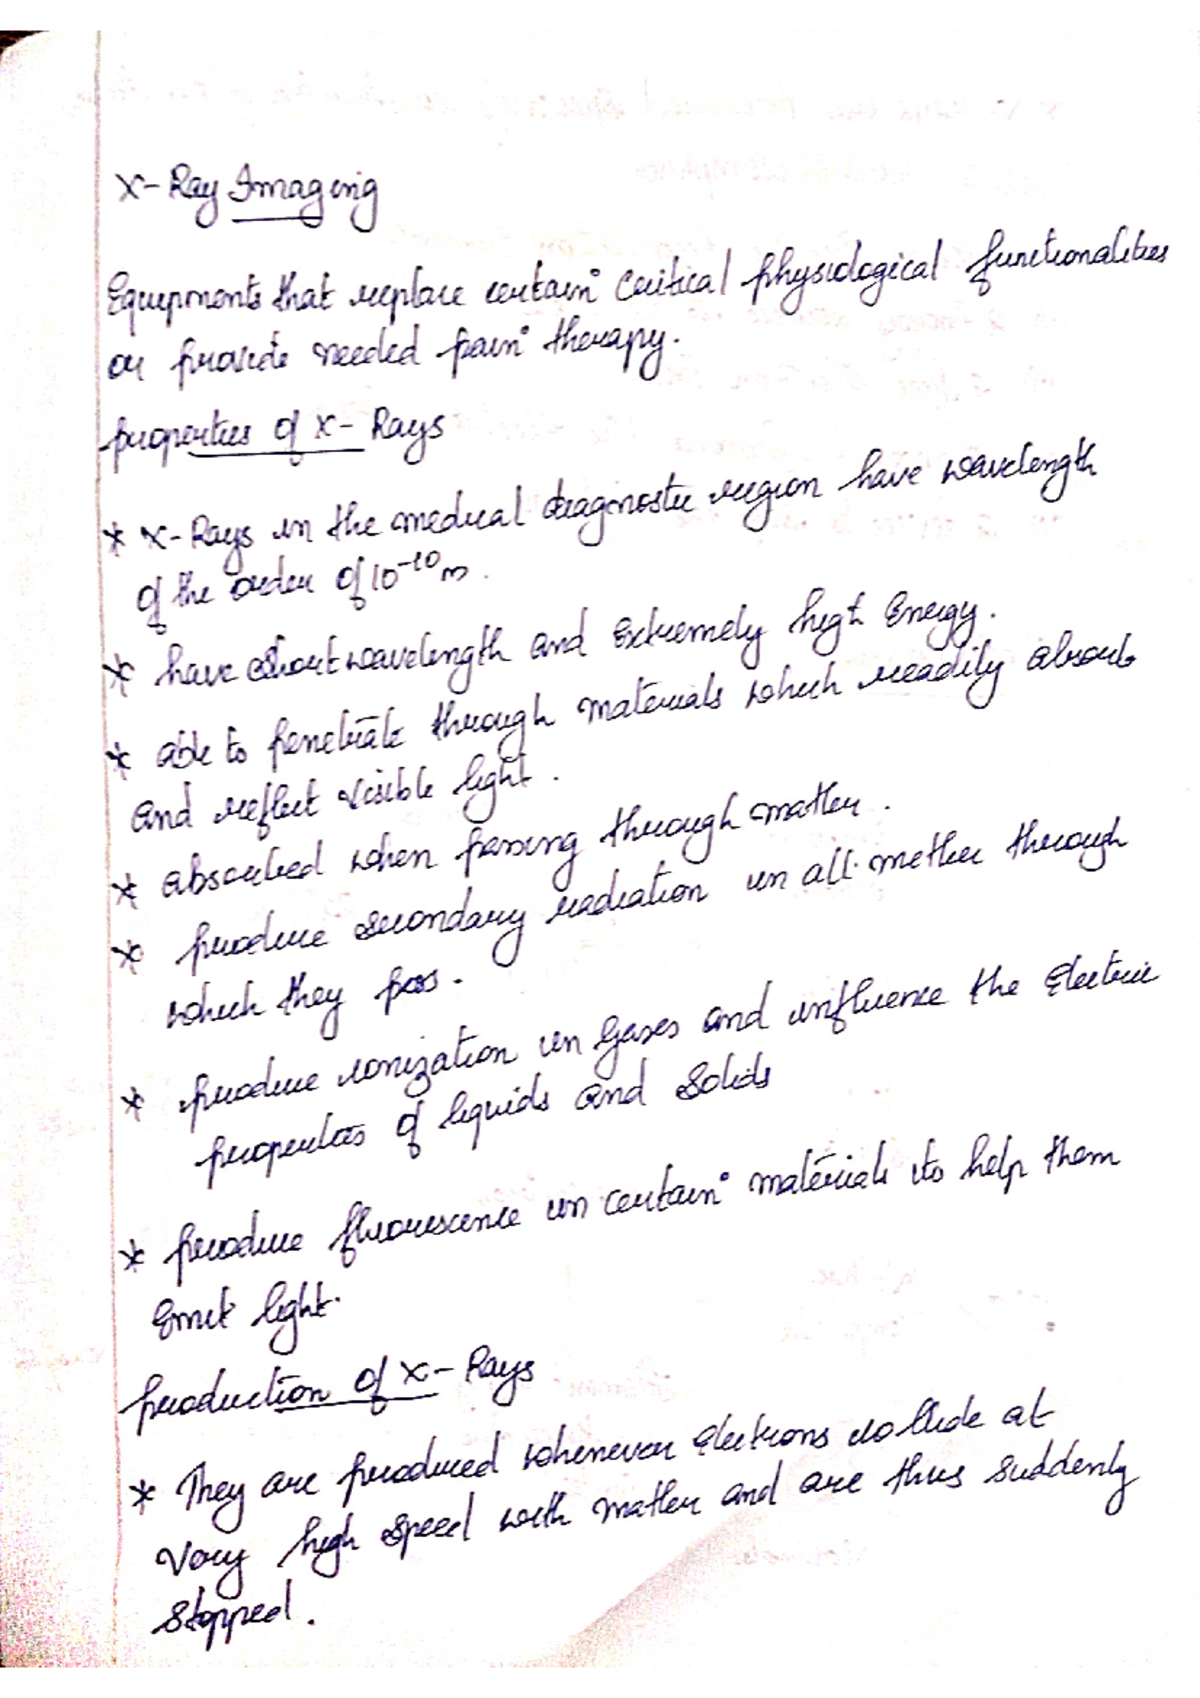 X-Ray Imaging
Equipments that replace certain critical physiological functionalities
or provide needed pain therapy.
properties of X-Rays
* X-Rays in the medical diagnostic region have wavelength
of the order of 10⁻¹⁰ m.
* have short wavelength and Extremely high Energy.
* able to penetrate through materials which readily absorb
and reflect visible light.
* absorbed when passing through matter.
* produce secondary radiation in all mether through
which they pass.
* produce ionization in Gases and influence the Electric
properties of liquids and Solids
* produce fluorescence in certain materials to help them
Emit light.
production of X-Rays
* They are produced whenever Electrons collide at
Very high Speed with matter and are thus Suddenly
Stopped.